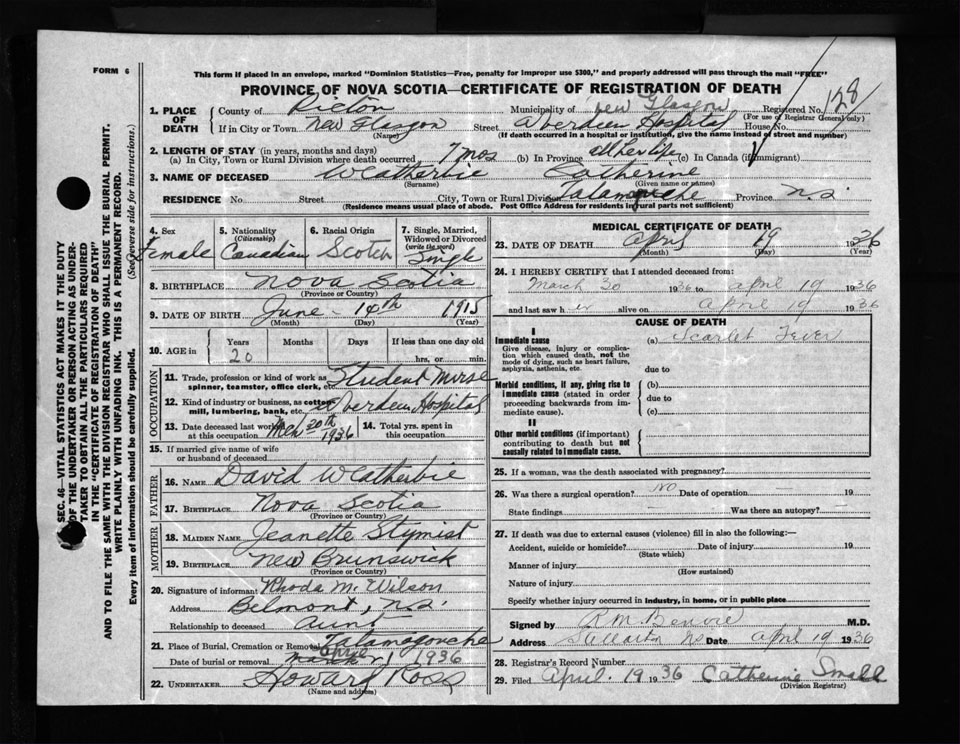 FORM 6
This form if placed in an envelope, marked "Dominion Statistics—Free, penalty for improper use $300," and properly addressed will pass through the mail "FREE"
PROVINCE OF NOVA SCOTIA—CERTIFICATE OF REGISTRATION OF DEATH
128
1. PLACE OF DEATH
County of Pictou Municipality of New Glasgow Registered No.
(For use of Registrar General only)
If in City or Town New Glasgow Street Aberdeen Hospital House No.
(Name) (If death occurred in a hospital or institution, give the name instead of street and number)
2. LENGTH OF STAY (in years, months and days)
(a) In City, Town or Rural Division where death occurred 7 mos (b) In Province all her life (c) In Canada (if immigrant)
3. NAME OF DECEASED Weatherbie Catherine
(Surname) (Given name or names)
RESIDENCE No. Street City, Town or Rural Division Tatamagouche Province N.S.
(Residence means usual place of abode. Post Office Address for residents in rural parts not sufficient)
4. Sex
Female
5. Nationality (Citizenship)
Canadian
6. Racial Origin
Scotch
7. Single, Married, Widowed or Divorced (write the word)
Single
8. BIRTHPLACE Nova Scotia
(Province or Country)
9. DATE OF BIRTH June 14th 1915
(Month) (Day) (Year)
10. AGE in Years Months Days If less than one day old
20 hrs. or min.
OCCUPATION
11. Trade, profession or kind of work as spinner, teamster, office clerk, etc. Student Nurse
12. Kind of industry or business, as cotton mill, lumbering, bank, etc. Aberdeen Hospital
13. Date deceased last worked at this occupation Mch 20th 1936
14. Total yrs. spent in this occupation
15. If married give name of wife or husband of deceased
FATHER
16. NAME David Weatherbie
17. BIRTHPLACE Nova Scotia
(Province or Country)
MOTHER
18. MAIDEN NAME Jeanette Stymist
19. BIRTHPLACE New Brunswick
(Province or Country)
20. Signature of informant Rhoda M. Wilson
Address Belmont, N.S.
Relationship to deceased Aunt
21. Place of Burial, Cremation or Removal Tatamagouche
Date of burial or removal April 1936
22. UNDERTAKER Howard Ross
(Name and address)
MEDICAL CERTIFICATE OF DEATH
23. DATE OF DEATH April 19 1936
(Month) (Day) (Year)
24. I HEREBY CERTIFY that I attended deceased from:
March 20 1936 to April 19 1936
and last saw her alive on April 19 1936
CAUSE OF DEATH
I
Immediate cause
Give disease, injury or complication which caused death, not the mode of dying, such as heart failure, asphyxia, asthenia, etc.
(a) Scarlet Fever
due to
Morbid conditions, if any, giving rise to immediate cause (stated in order proceeding backwards from immediate cause).
(b)
due to
(c)
II
Other morbid conditions (if important) contributing to death but not causally related to immediate cause.
25. If a woman, was the death associated with pregnancy?
26. Was there a surgical operation? No Date of operation 19
State findings Was there an autopsy?
27. If death was due to external causes (violence) fill in also the following:—
Accident, suicide or homicide? Date of injury 19
(State which)
Manner of injury
(How sustained)
Nature of injury
Specify whether injury occurred in industry, in home, or in public place
Signed by R M Benvie M.D.
Address Stellarton NS Date April 19 1936
28. Registrar's Record Number
29. Filed April 19 1936 Catherine Small
(Division Registrar)
SEC. 46—VITAL STATISTICS ACT MAKES IT THE DUTY
OF THE UNDERTAKER OR PERSON ACTING AS UNDERTAKER TO OBTAIN ALL THE PARTICULARS REQUIRED
IN THE "CERTIFICATE OF REGISTRATION OF DEATH"
AND TO FILE THE SAME WITH THE DIVISION REGISTRAR WHO SHALL ISSUE THE BURIAL PERMIT.
WRITE PLAINLY WITH UNFADING INK. THIS IS A PERMANENT RECORD.
Every item of information should be carefully supplied. (See reverse side for instructions.)